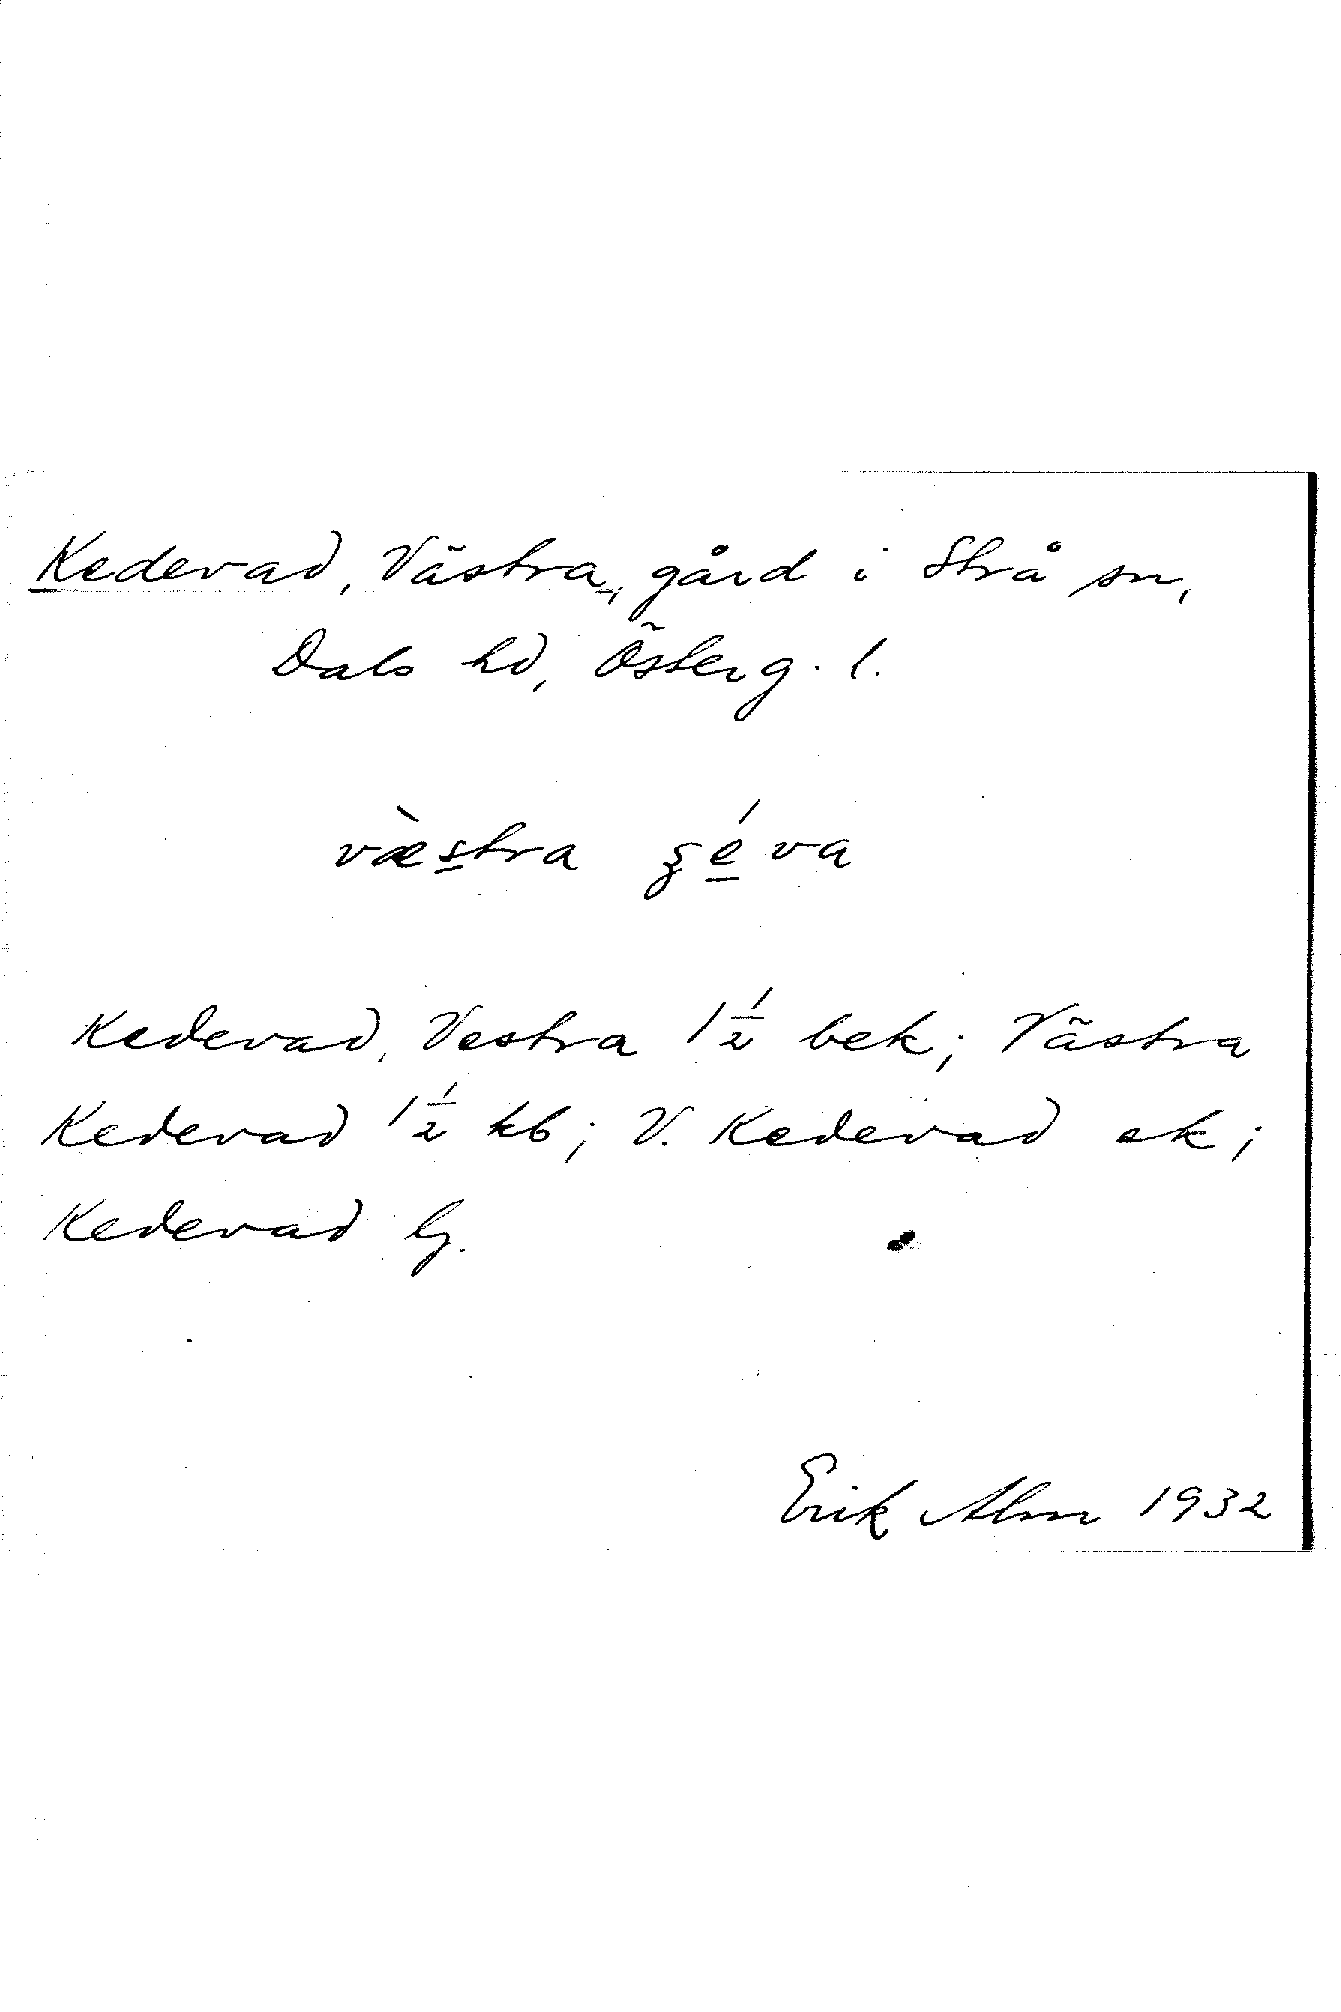 Kedevad, Västra, gård i Strå sn,
Dals hd, Österg. l.
væ̀stra ʂéva
Kedevad, Vestra 1½ bek; Västra
Kedevad 1½ kb; V. Kedevad ek;
Kedevad lj.
Erik Alm 1932